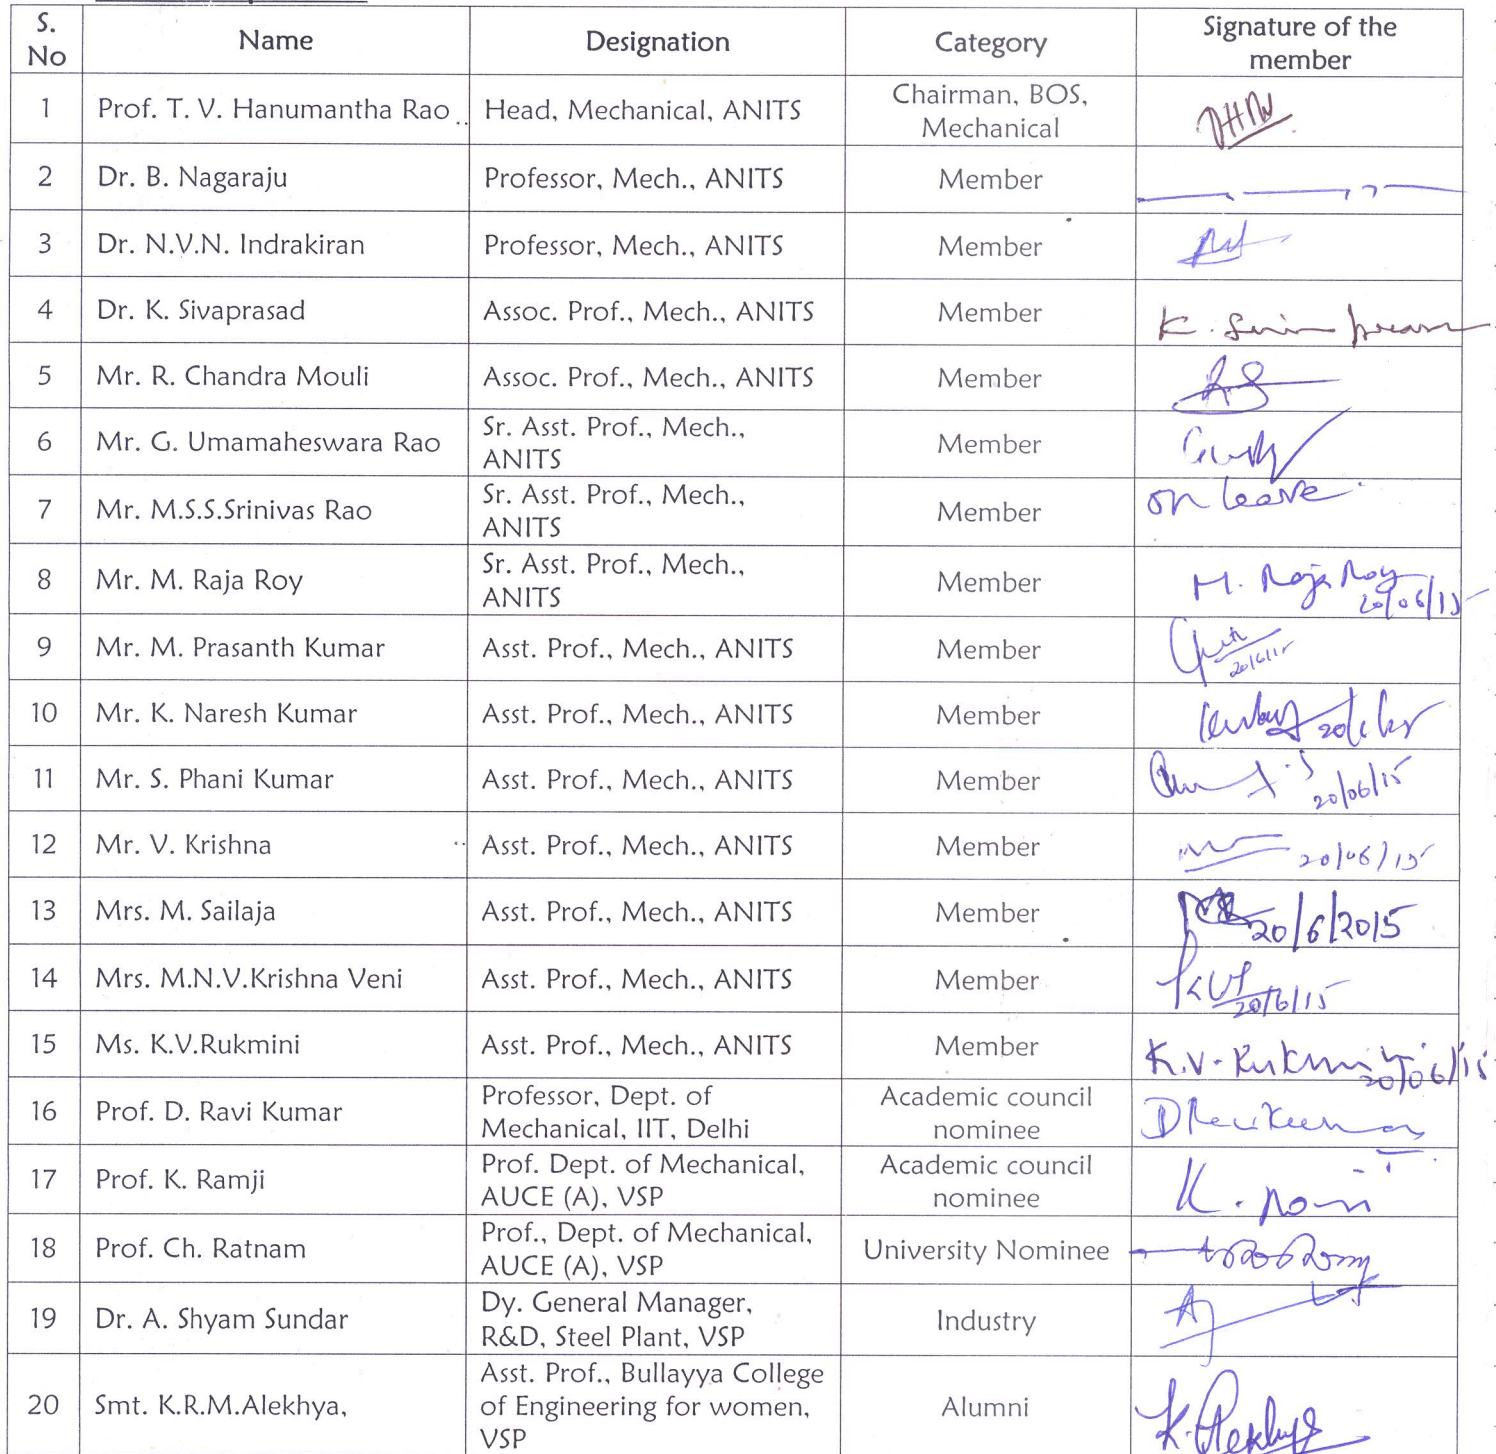 S. No Name Designation Category Signature of the member
1 Prof. T. V. Hanumantha Rao Head, Mechanical, ANITS Chairman, BOS, Mechanical
2 Dr. B. Nagaraju Professor, Mech., ANITS Member
3 Dr. N.V.N. Indrakiran Professor, Mech., ANITS Member
4 Dr. K. Sivaprasad Assoc. Prof., Mech., ANITS Member
5 Mr. R. Chandra Mouli Assoc. Prof., Mech., ANITS Member
6 Mr. G. Umamaheswara Rao Sr. Asst. Prof., Mech., ANITS Member
7 Mr. M.S.S.Srinivas Rao Sr. Asst. Prof., Mech., ANITS Member on leave
8 Mr. M. Raja Roy Sr. Asst. Prof., Mech., ANITS Member M. Raja Roy 20/06/15
9 Mr. M. Prasanth Kumar Asst. Prof., Mech., ANITS Member 20/6/15
10 Mr. K. Naresh Kumar Asst. Prof., Mech., ANITS Member
11 Mr. S. Phani Kumar Asst. Prof., Mech., ANITS Member 20/06/15
12 Mr. V. Krishna Asst. Prof., Mech., ANITS Member 20/06/15
13 Mrs. M. Sailaja Asst. Prof., Mech., ANITS Member 20/6/2015
14 Mrs. M.N.V.Krishna Veni Asst. Prof., Mech., ANITS Member 20/6/15
15 Ms. K.V.Rukmini Asst. Prof., Mech., ANITS Member K.V. Rukmini 20/06/15
16 Prof. D. Ravi Kumar Professor, Dept. of Mechanical, IIT, Delhi Academic council nominee D Ravikumar
17 Prof. K. Ramji Prof. Dept. of Mechanical, AUCE (A), VSP Academic council nominee
18 Prof. Ch. Ratnam Prof., Dept. of Mechanical, AUCE (A), VSP University Nominee
19 Dr. A. Shyam Sundar Dy. General Manager, R&D, Steel Plant, VSP Industry
20 Smt. K.R.M.Alekhya, Asst. Prof., Bullayya College of Engineering for women, VSP Alumni K. Alekhya